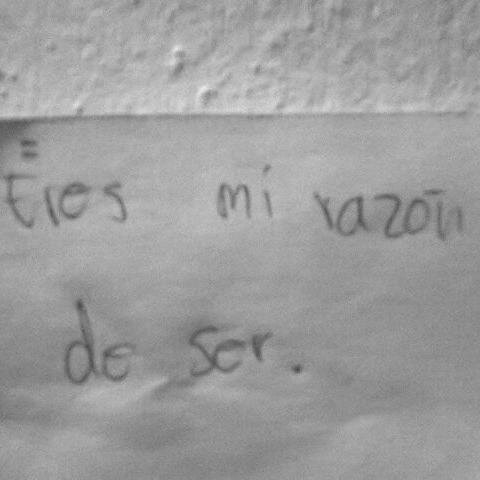 Eres mi razón
de ser.